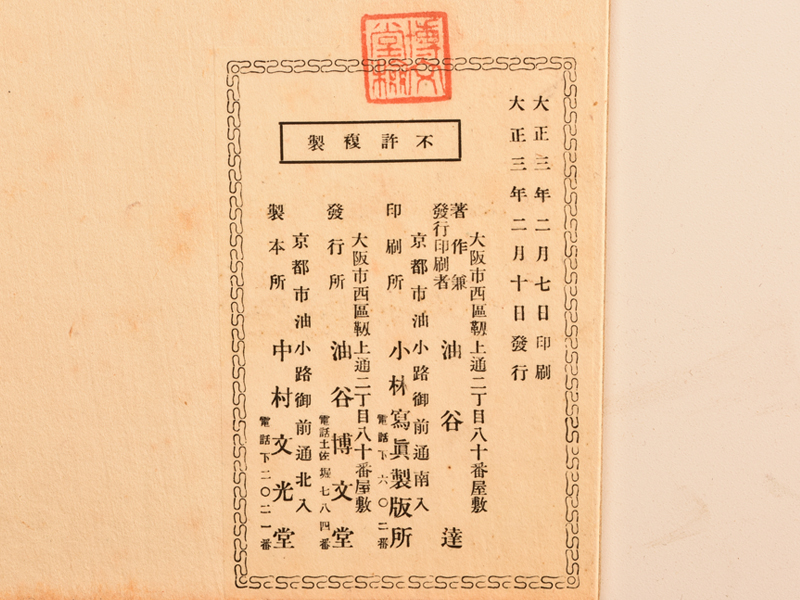 大正三年二月七日印刷
大正三年二月十日發行
不許複製
大阪市西區靱上通二丁目八十番屋敷
著作兼
發行印刷者
油谷達
京都市油小路御前通南入
印刷所
小林寫眞製版所
電話下六〇二番
大阪市西區靱上通二丁目八十番屋敷
發行所
油谷博文堂
電話土佐堀七八四番
京都市油小路御前通北入
製本所
中村文光堂
電話下二〇二一番